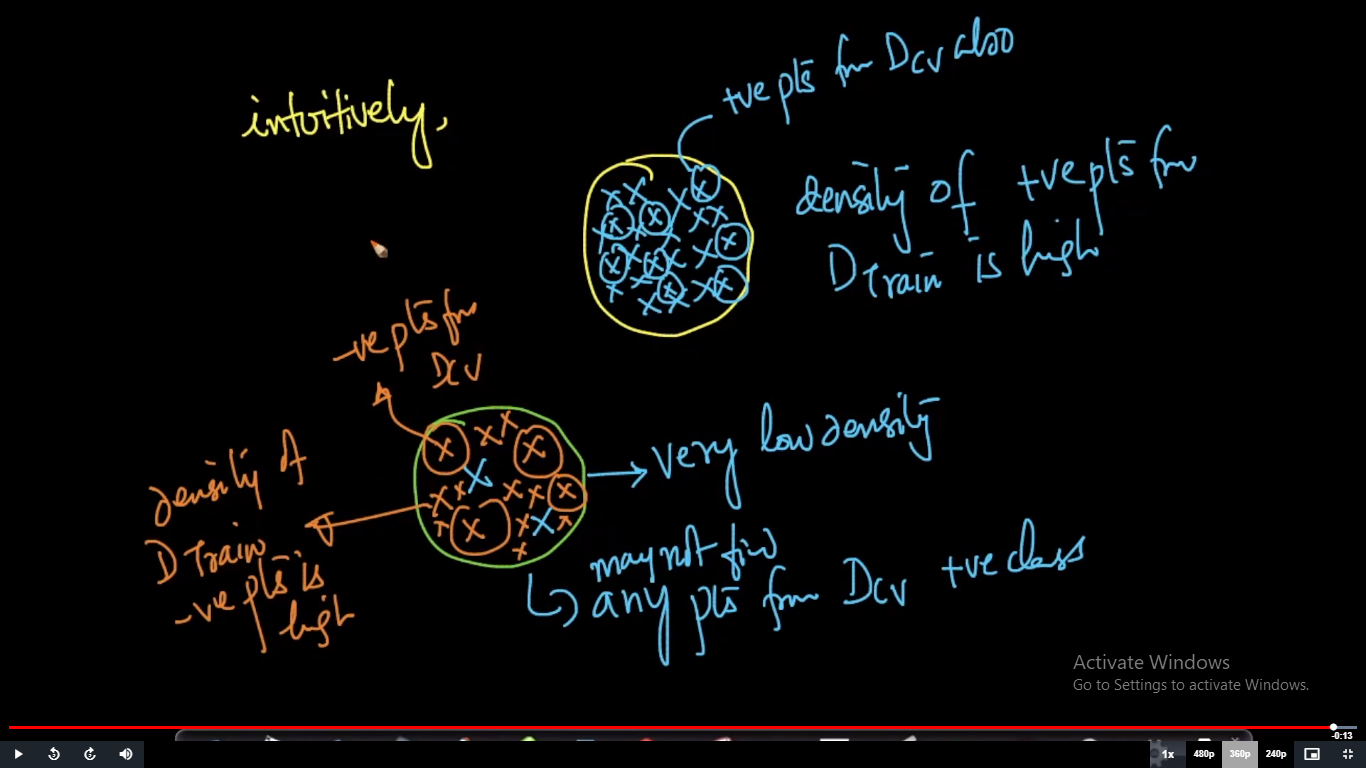 intuitively,
+ve pts from DCV also
density of +ve pts from
DTrain is high
-ve pts from
DCV
very low density
density of
DTrain
-ve pts is
high
may not find
any pts from DCV +ve class
Activate Windows
Go to Settings to activate Windows.
-0:13
1x 480p 360p 240p